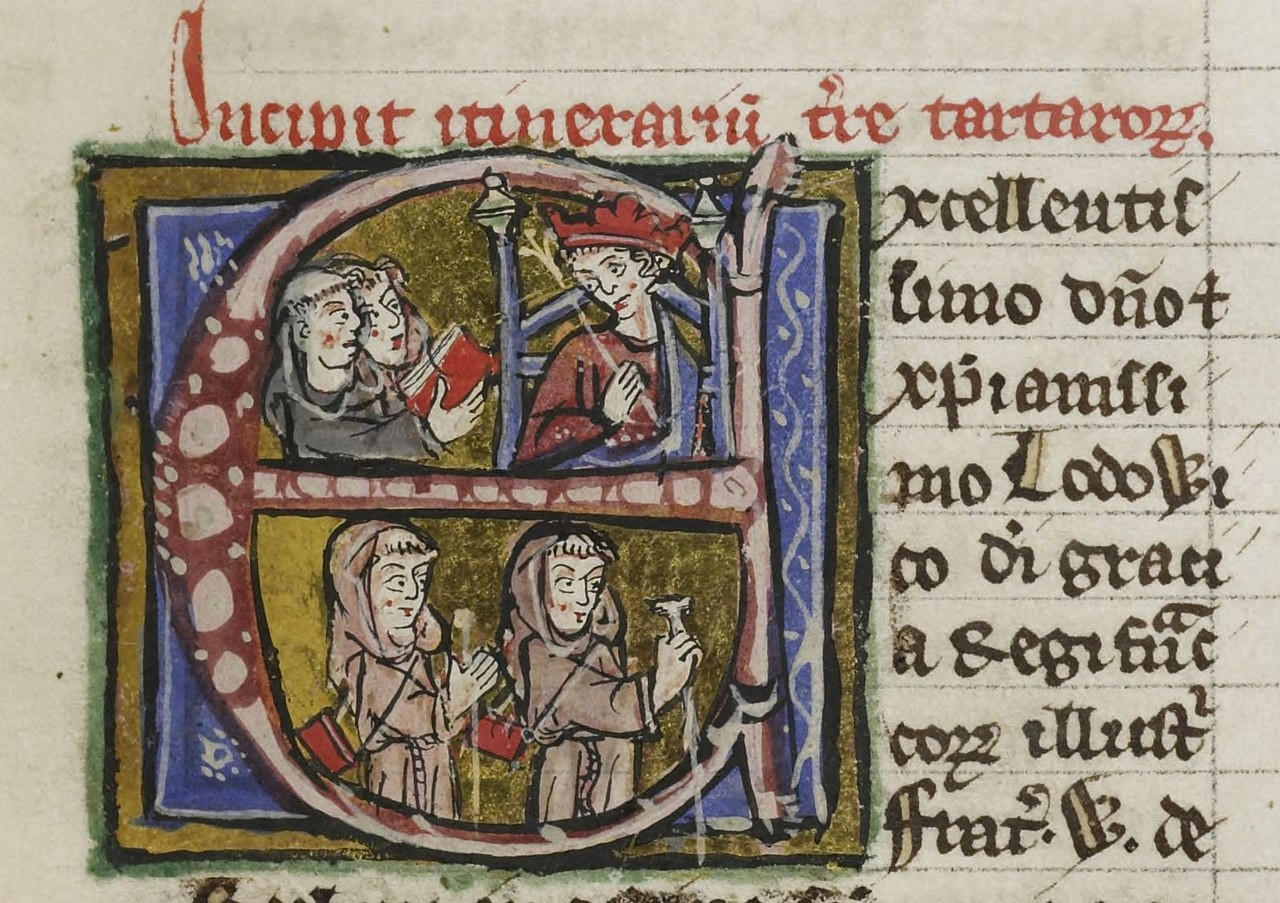 Incipit itinerariū t̄re tartaroꝝ.
Excellentis
simo dño ⁊
xp̄ianissi
mo Lodowi
co dī graci
a Regi francͣ
coꝝ illustͥ
ffrat̕. W. de